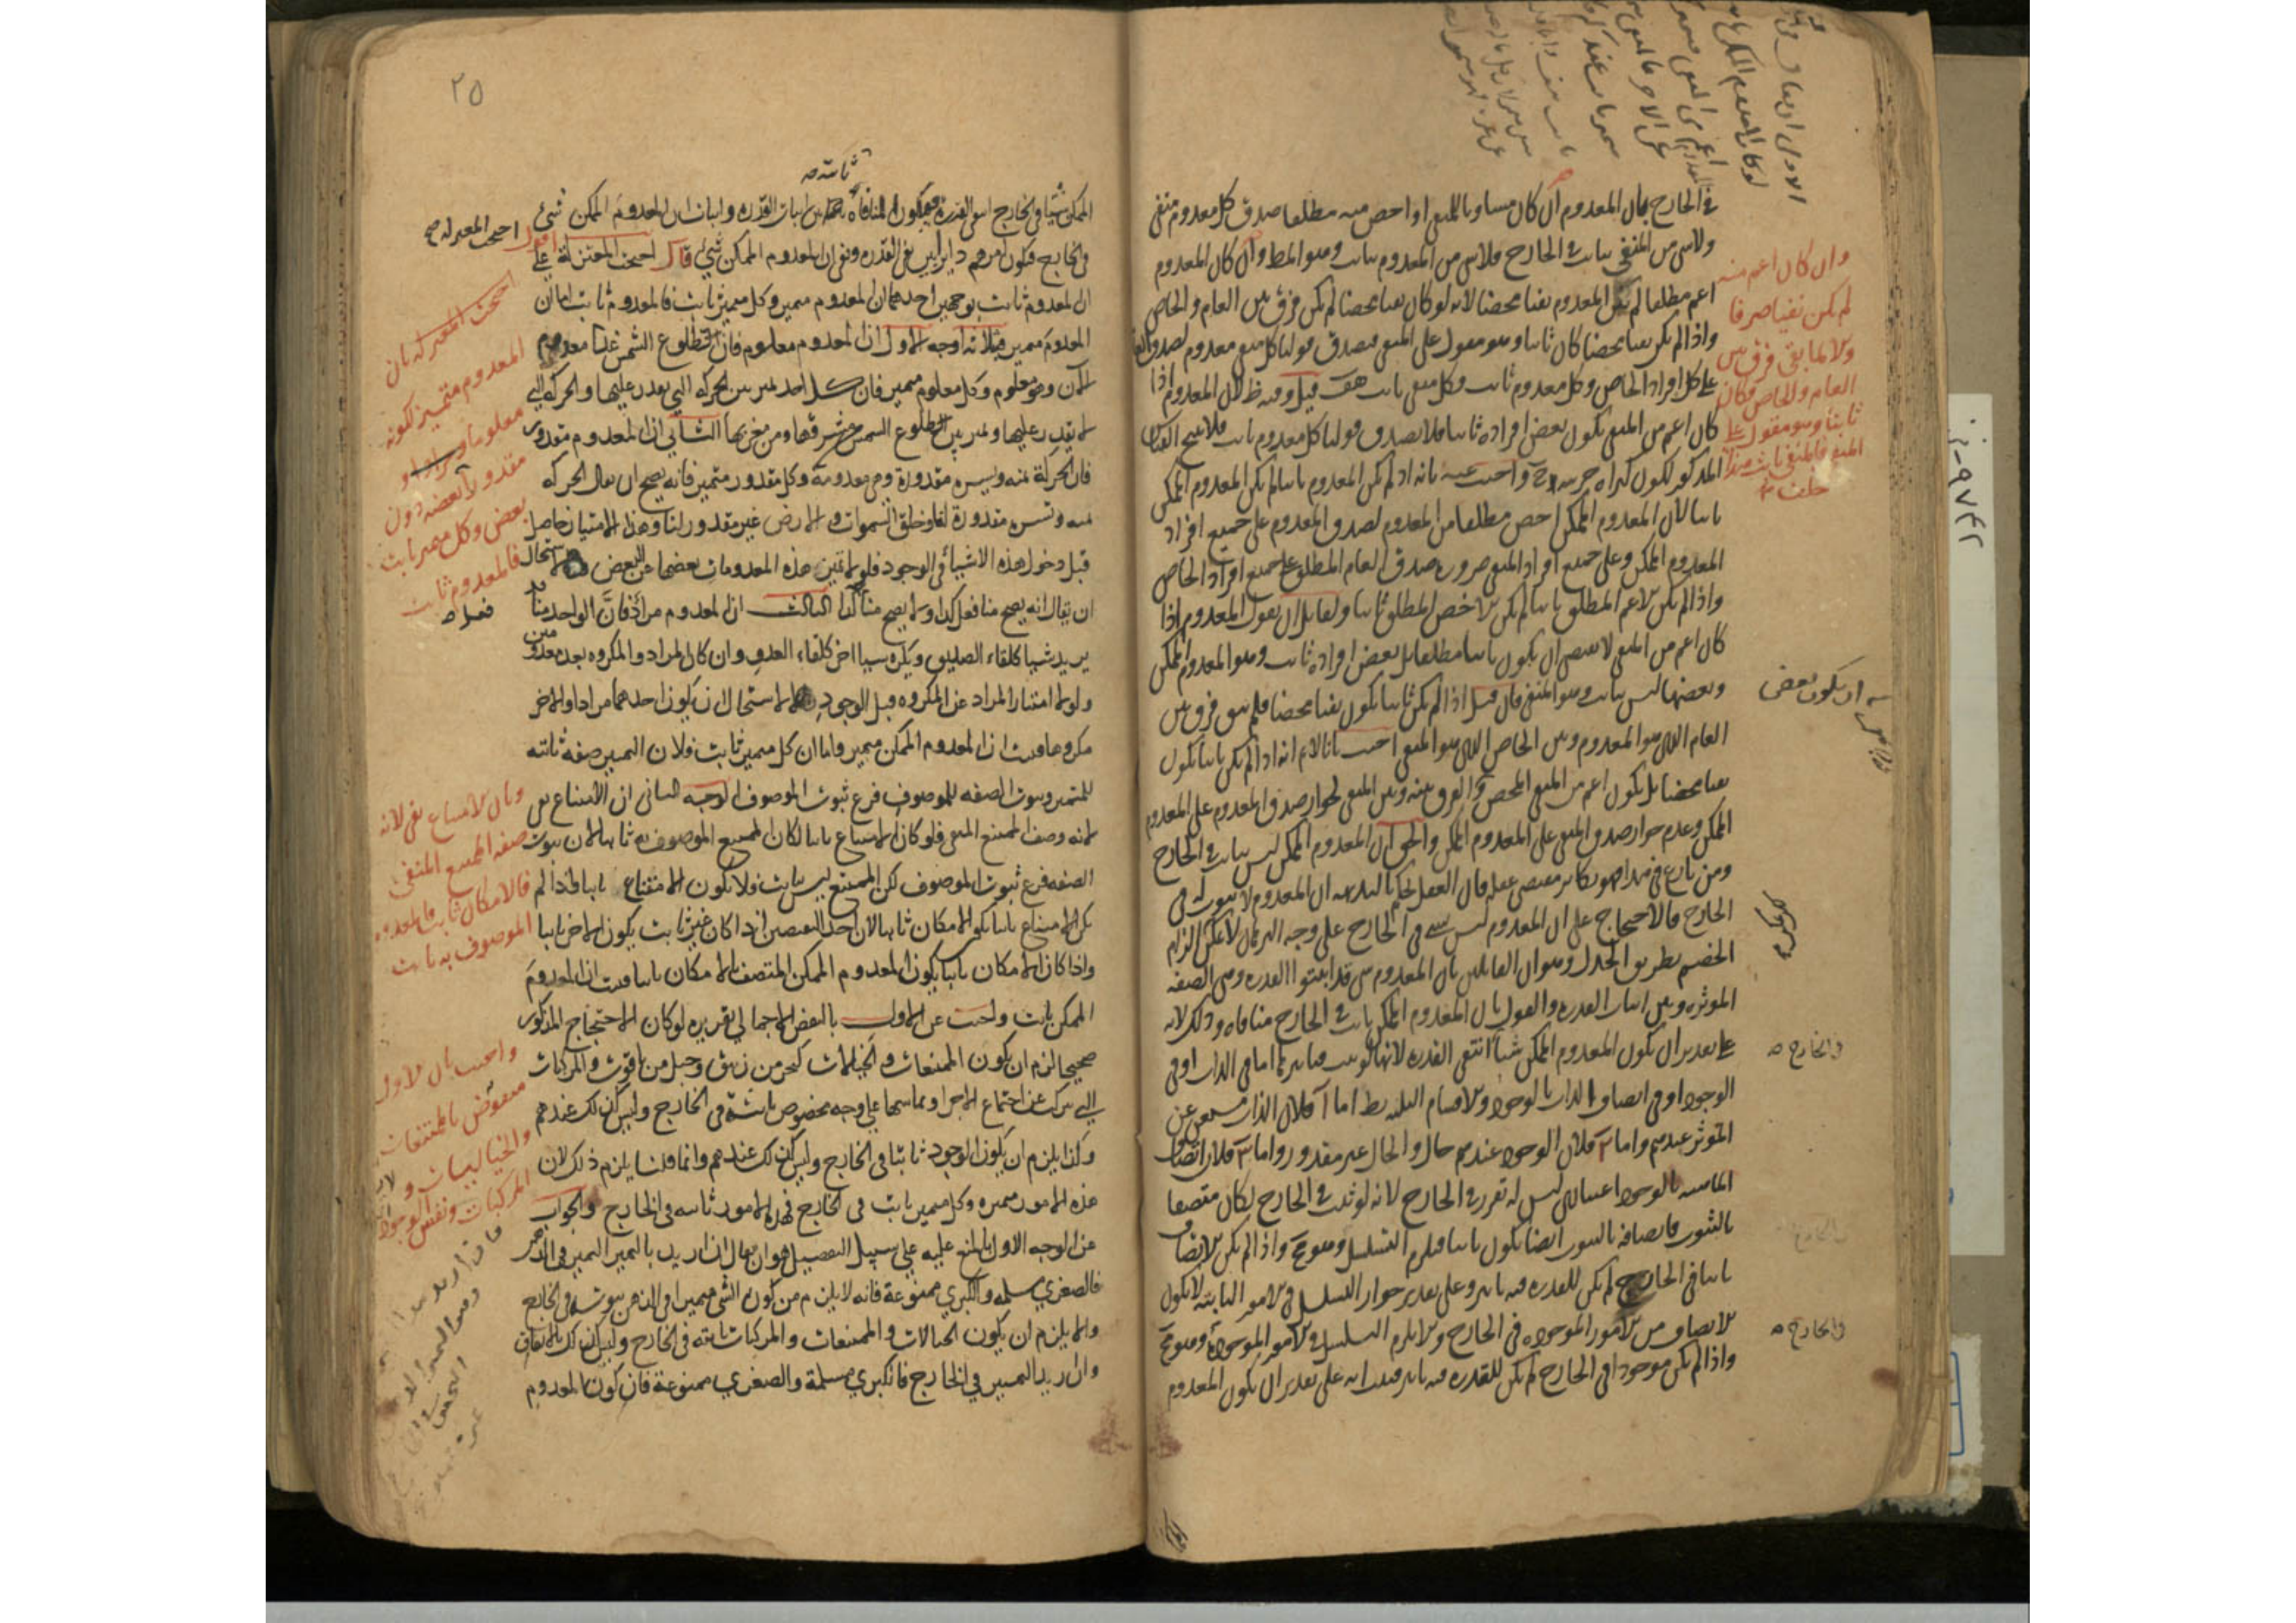 في الخارج بان المعدوم ان كان مساويا للمنفي او اخص منه مطلقا صدق كل معدوم منفي
ولا شي من المنفي بثابت في الخارج فلا شي من المعدوم بثابت وهو المط وان كان المعدوم
اعم مطلقا لم يكن المعدوم نفيا محضا لانه لو كان نفيا محضا لم يكن فرق بين العام والخاص
واذا لم يكن نفيا محضا كان ثابتا وهو مقول على المنفي فيصدق قولنا كل منفي معدوم لصدق العام
على كل افراد الخاص وكل معدوم ثابت وكل منفي ثابت هف قيل وفيه نظر لان المعدوم اذا
كان اعم من المنفي يكون بعض افراده ثابتا فلا يصدق قولنا كل معدوم ثابت فلا ينتج القياس
المذكور لكون كبراه جزئية واجيب عنه بانه اذا لم يكن المعدوم ثابتا لم يكن المعدوم الممكن
ثابتا لان المعدوم الممكن اخص مطلقا من المعدوم لصدق المعدوم على جميع افراد
المعدوم الممكن وعلى جميع افراد المنفي ضرورة صدق العام المطلق على جميع افراد الخاص
واذا لم يكن الاعم المطلق ثابتا لم يكن الاخص المطلق ثابتا ولقائل ان يقول المعدوم اذا
كان اعم من المنفي لا يقتضي ان يكون ثابتا مطلقا بل بعض افراده ثابت وهو المعدوم الممكن
وبعضها ليس بثابت وهو المنفي فان قيل اذا لم يكن ثابتا يكون نفيا محضا فلم يبق فرق بين
العام الذي هو المعدوم وبين الخاص الذي هو المنفي اجيب بانا لا نم انه اذا لم يكن ثابتا يكون
نفيا محضا بل يكون اعم من المنفي المحض والفرق بينه وبين المنفي لجواز صدق المعدوم على المعدوم
الممكن وعدم جواز صدق المنفي على المعدوم الممكن والحق ان المعدوم الممكن ليس بثابت في الخارج
ومن نازع في هذا فهو مكابر مقتضى عقله فان العقل يحكم بالبديهة ان المعدوم لا ثبوت له في
الخارج فالاحتجاج على ان المعدوم ليس بشي في الخارج على وجه البرهان لا يمكن الزام
الخصم بطريق الجدل وهو ان القائلين بان المعدوم شي قد اثبتوا القدرة وهي الصفة
الموثرة وبين اثبات القدرة والقول بان المعدوم الممكن ثابت في الخارج منافاة وذلك لانه
على تقدير ان يكون المعدوم الممكن شيأ انتفى القدرة لانها لو ثبت فتاثيرها اما في الذات او في
الوجود او في اتصاف الذات بالوجود والاقسام الثلثة بط اما آ فلان الذات مستغن عن
الموثر عندهم واما فلان الوجود عندهم حال والحال غير مقدور واما فلان اتصاف
الماهية بالوجود اعتباري ليس له تقرر في الخارج لانه لو ثبت في الخارج لكان متصفا
بالثبوت فاتصافه بالثبوت ايضا يكون ثابتا فيلزم التسلسل وهو مح واذا لم يكن الاتصاف
ثابتا في الخارج لم يكن للقدرة فيه تاثير وعلى تقدير جواز التسلسل في الامور الثابتة لا يكون
الاتصاف من الامور الموجودة في الخارج والا يلزم التسلسل في الامور الموجودة وهو مح
واذا لم يكن موجودا في الخارج لم يكن للقدرة فيه تاثير فثبت انه على تقدير ان يكون المعدوم
وان كان اعم منه
لم يكن نفيا صرفا
والا لما بقي فرق بين
العام والخاص وكان
ثابتا وهو مقول على
المنفي فالمنفي ثابت هذا
خلف
ان يكون بعض
والخارج
والخارج
٢٥
ثابتة
الممكن شيا في الخارج انتفى القدرة فيكون المنافاة بين اثبات القدرة واثبات ان المعدوم الممكن شي
في الخارج فيكون امرهم دايرا بين نفي القدرة ونفي ان المعدوم الممكن شي قال احتجت المعتزلة على
ان المعدوم ثابت بوجهين احدهما ان المعدوم متميز وكل متميز ثابت فالمعدوم ثابت اما ان
المعدوم متميز فلثلاثة اوجه الاول ان المعدوم معلوم فان طلوع الشمس غدا معدوم
الآن وهو معلوم وكل معلوم متميز فان كل احد يميز بين الحركة التي يقدر عليها والحركة التي
لا يقدر عليها ويميز بين طلوع الشمس من مشرقها ومن مغربها الثاني ان المعدوم مقدور
فان الحركة يمنة ويسرة مقدورة وهي معدومة وكل مقدور متميز فانه يصح ان يقال الحركة
يمنة ويسرة مقدورة لنا وخلق السموات والارض غير مقدور لنا وهذا الامتياز حاصل
قبل دخول هذه الاشيا في الوجود فلولا تميز هذه المعدومات بعضها عن البعض لاستحال
ان يقال انه يصح منا فعل كذا ولا يصح منا كذا الثالث ان المعدوم مراد فان الواحد منا قد
يريد شيا كلقاء الصديق ويكره شيا اخر كلقاء العدو وان كان المراد والمكروه بعد معدومين
ولولا امتياز المراد عن المكروه قبل الوجود لاستحال ان يكون احدهما مرادا والاخر
مكروها فثبت ان المعدوم الممكن متميز واما ان كل متميز ثابت فلان التميز صفة ثابتة
للمتميز وثبوت الصفة للموصوف فرع ثبوت الموصوف الوجه الثاني ان الامتناع نفي
لانه وصف الممتنع المنفي فلو كان الامتناع ثابتا لكان الممتنع الموصوف به ثابتا لان ثبوت
الصفة فرع ثبوت الموصوف لكن الممتنع ليس بثابت فلا يكون الامتناع ثابتا فاذا لم
يكن الامتناع ثابتا يكون الامكان ثابتا لان احد النقيضين اذا كان غير ثابت يكون الاخر ثابتا
واذا كان الامكان ثابتا يكون المعدوم الممكن المتصف بالامكان ثابتا فثبت ان المعدوم
الممكن ثابت واجيب عن الاول بالنقض الاجمالي تقريره لو كان الاحتجاج المذكور
صحيحا لزم ان يكون الممتنعات والخياليات كبحر من زيبق وجبل من ياقوت والمركبات
التي تركبت عن اجتماع الاجزاء وتماسها على وجه مخصوص ثابتة في الخارج وليس كذلك عندهم
وكذا يلزم ان يكون الوجود ثابتا في الخارج وليس كذلك عندهم وانما قلنا يلزم ذلك لان
هذه الامور متميزة وكل متميز ثابت في الخارج فهذه الامور ثابتة في الخارج والجواب
عن الوجه الاول بالمنع عليه على سبيل التفصيل هو ان يقال ان اريد بالتميز التميز في الذهن
فالصغرى مسلمة والكبرى ممنوعة فانه لا يلزم من كون الشي متميزا في الذهن ثبوته في الخارج
والا يلزم ان يكون الخيالات والممتنعات والمركبات ثابتة في الخارج وليس كذلك بالاتفاق
وان اريد التميز في الخارج فالكبرى مسلمة والصغرى ممنوعة فان كون المعدوم
احتجت المعتزلة
اقول
احتجت المعتزلة بان
المعدوم متميز لكونه
معلوما ومرادا و
مقدورا بعضه دون
بعض وكل متميز ثابت
فالمعدوم ثابت
فعل
وبان الامتناع نفي لانه
صفة الممتنع المنفي
فالامكان ثابت فالمعدوم
الموصوف به ثابت
واجيب بان الاول
منقوض بالممتنعات
والخياليات و
المركبات ونفس الوجود